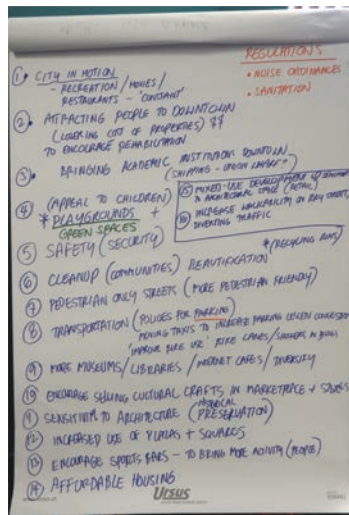 REGULATIONS
• NOISE ORDINANCES
• SANITATION
① CITY IN MOTION
- RECREATION / MOVIES /
RESTAURANTS - 'CONSTANT'
② ATTRACTING PEOPLE TO DOWNTOWN
(LOWERING COST OF PROPERTIES)
TO ENCOURAGE REHABILITATION
③ BRINGING ACADEMIC INSTITUTION DOWNTOWN
④ (APPEAL TO CHILDREN)
* PLAYGROUNDS +
GREEN SPACES
⑮ MIXED-USE DEVELOPMENT
ARCHITECTURAL SPACE (RETAIL)
⑯ INCREASE WALKABILITY ON BAY STREET,
DIVERTING TRAFFIC
⑤ SAFETY (SECURITY)
⑥ CLEANUP (COMMUNITIES) BEAUTIFICATION */(RECYCLING BINS)
⑦ PEDESTRIAN ONLY STREETS (MORE PEDESTRIAN FRIENDLY)
⑧ TRANSPORTATION (POLICIES FOR PARKING)
MOVING TAXIS TO INCREASE PARKING
'IMPROVE BIKE USE' BIKE LANES / SHOWERS IN BLDGS
⑨ MORE MUSEUMS / LIBRARIES / INTERNET CAFES / DIVERSITY
⑩ ENCOURAGE SELLING CULTURAL CRAFTS IN MARKETPLACE +
⑪ SENSITIVITY TO ARCHITECTURE (HISTORICAL
PRESERVATION)
⑫ INCREASED USE OF PLAZAS + SQUARES
⑬ ENCOURAGE SPORTS BARS - TO BRING MORE ACTIVITY (PEOPLE)
⑭ AFFORDABLE HOUSING
Ursus